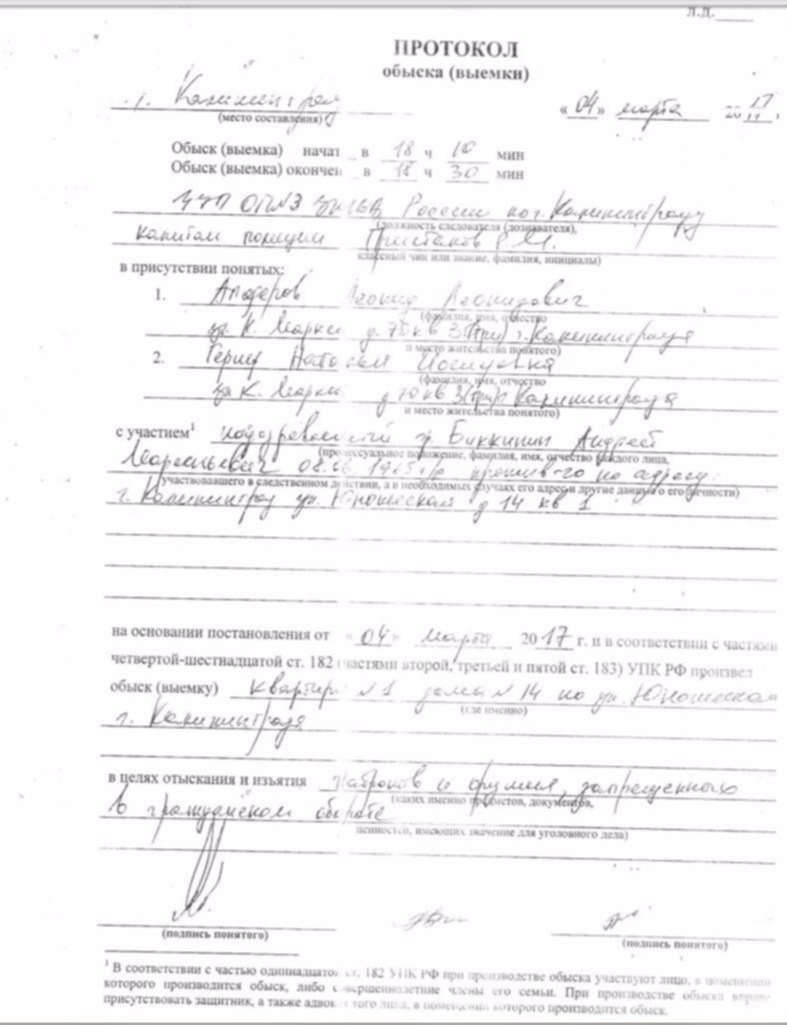 л.д.
ПРОТОКОЛ
обыска (выемки)
г. Калининград
(место составления)
«04» марта 2017
Обыск (выемка) начат в 18 ч 10 мин
Обыск (выемка) окончен в 18 ч 30 мин
России по г. Калининграду
(должность следователя (дознавателя),
капитан полиции
классный чин или звание, фамилия, инициалы)
в присутствии понятых:
1. Леонид Леонидович
(фамилия, имя, отчество
ул К. Маркса д. 70 кв г. Калининграда
и место жительства понятого)
2.
(фамилия, имя, отчество
ул К. Маркса д 70 кв Калининграда
и место жительства понятого)
с участием¹ гр. Биккинин Андрей
(процессуальное положение, фамилия, имя, отчество каждого лица,
по адресу:
участвовавшего в следственном действии, а в необходимых случаях его адрес и другие данные о его личности)
г. Калининград ул. Юношеская д 14 кв 1
на основании постановления от «04» марта 2017 г. и в соответствии с частями
четвертой-шестнадцатой ст. 182 (частями второй, третьей и пятой ст. 183) УПК РФ произвел
обыск (выемку) квартире №1 дома №14 по ул. Юношеская
(где именно)
г. Калининграда
в целях отыскания и изъятия патронов и оружия, запрещенного
(каких именно предметов, документов,
в гражданском обороте
ценностей, имеющих значение для уголовного дела)
(подпись понятого)
(подпись понятого)
¹ В соответствии с частью одиннадцатой ст. 182 УПК РФ при производстве обыска участвуют лицо, в помещении
которого производится обыск, либо совершеннолетние члены его семьи. При производстве обыска вправе
присутствовать защитник, а также адвокат того лица, в помещении которого производится обыск.